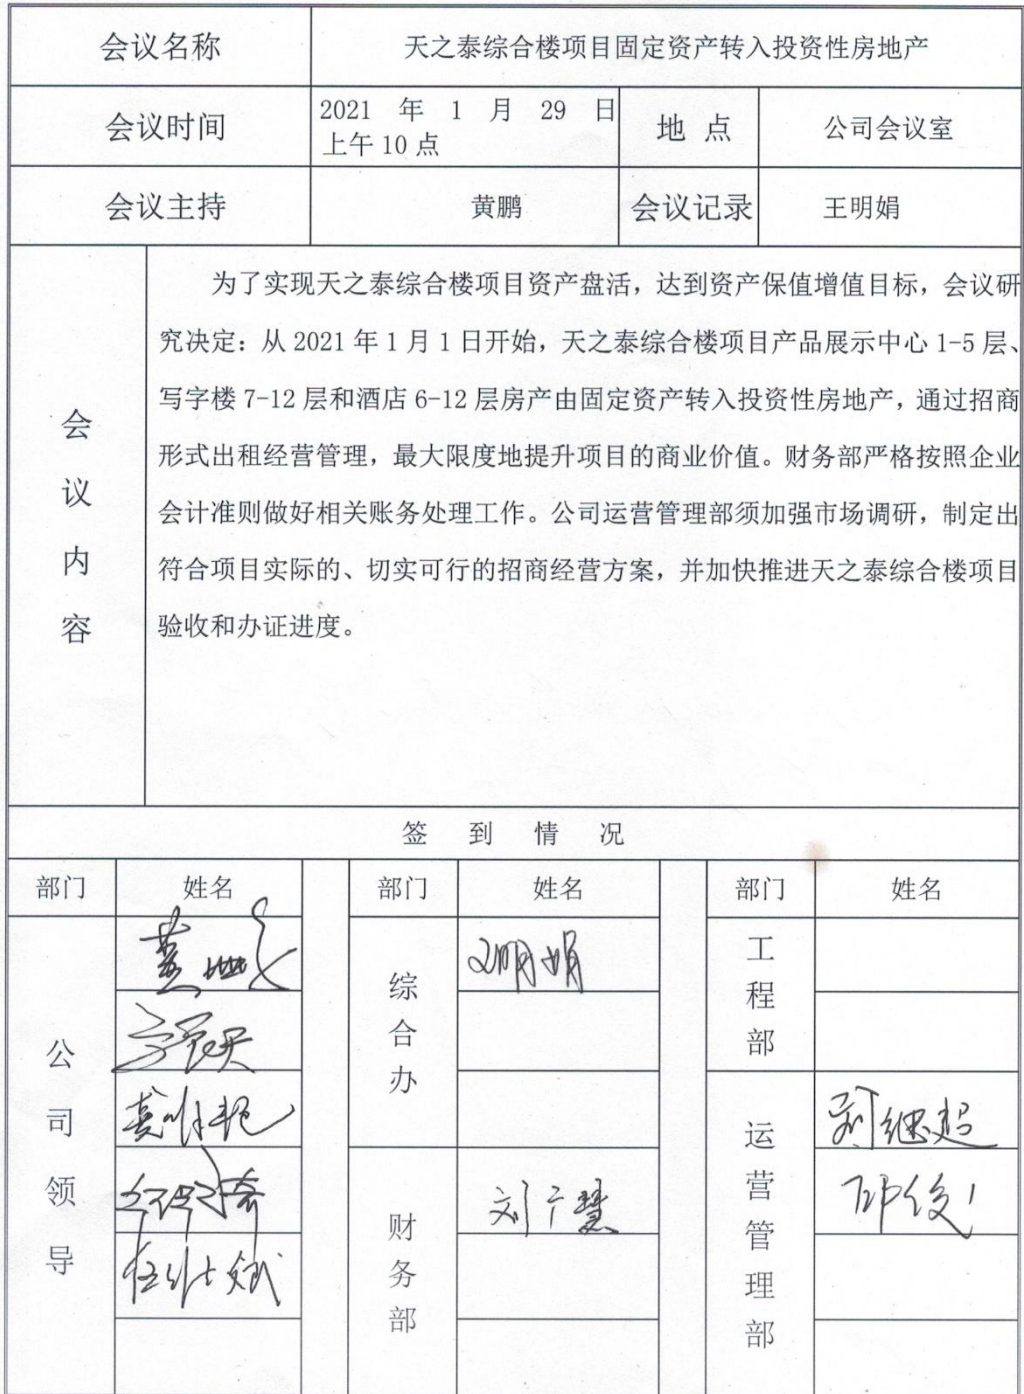 会议名称 天之泰综合楼项目固定资产转入投资性房地产
会议时间 2021 年 1 月 29 日 上午 10 点 地 点 公司会议室
会议主持 黄鹏 会议记录 王明娟
会议内容
为了实现天之泰综合楼项目资产盘活，达到资产保值增值目标，会议研
究决定：从 2021 年 1 月 1 日开始，天之泰综合楼项目产品展示中心 1-5 层、
写字楼 7-12 层和酒店 6-12 层房产由固定资产转入投资性房地产，通过招商
形式出租经营管理，最大限度地提升项目的商业价值。财务部严格按照企业
会计准则做好相关账务处理工作。公司运营管理部须加强市场调研，制定出
符合项目实际的、切实可行的招商经营方案，并加快推进天之泰综合楼项目
验收和办证进度。
签 到 情 况
部门 姓名 部门 姓名 部门 姓名
公司领导
综合办 王明娟
财务部 刘广慧
工程部
运营管理部
邱俊